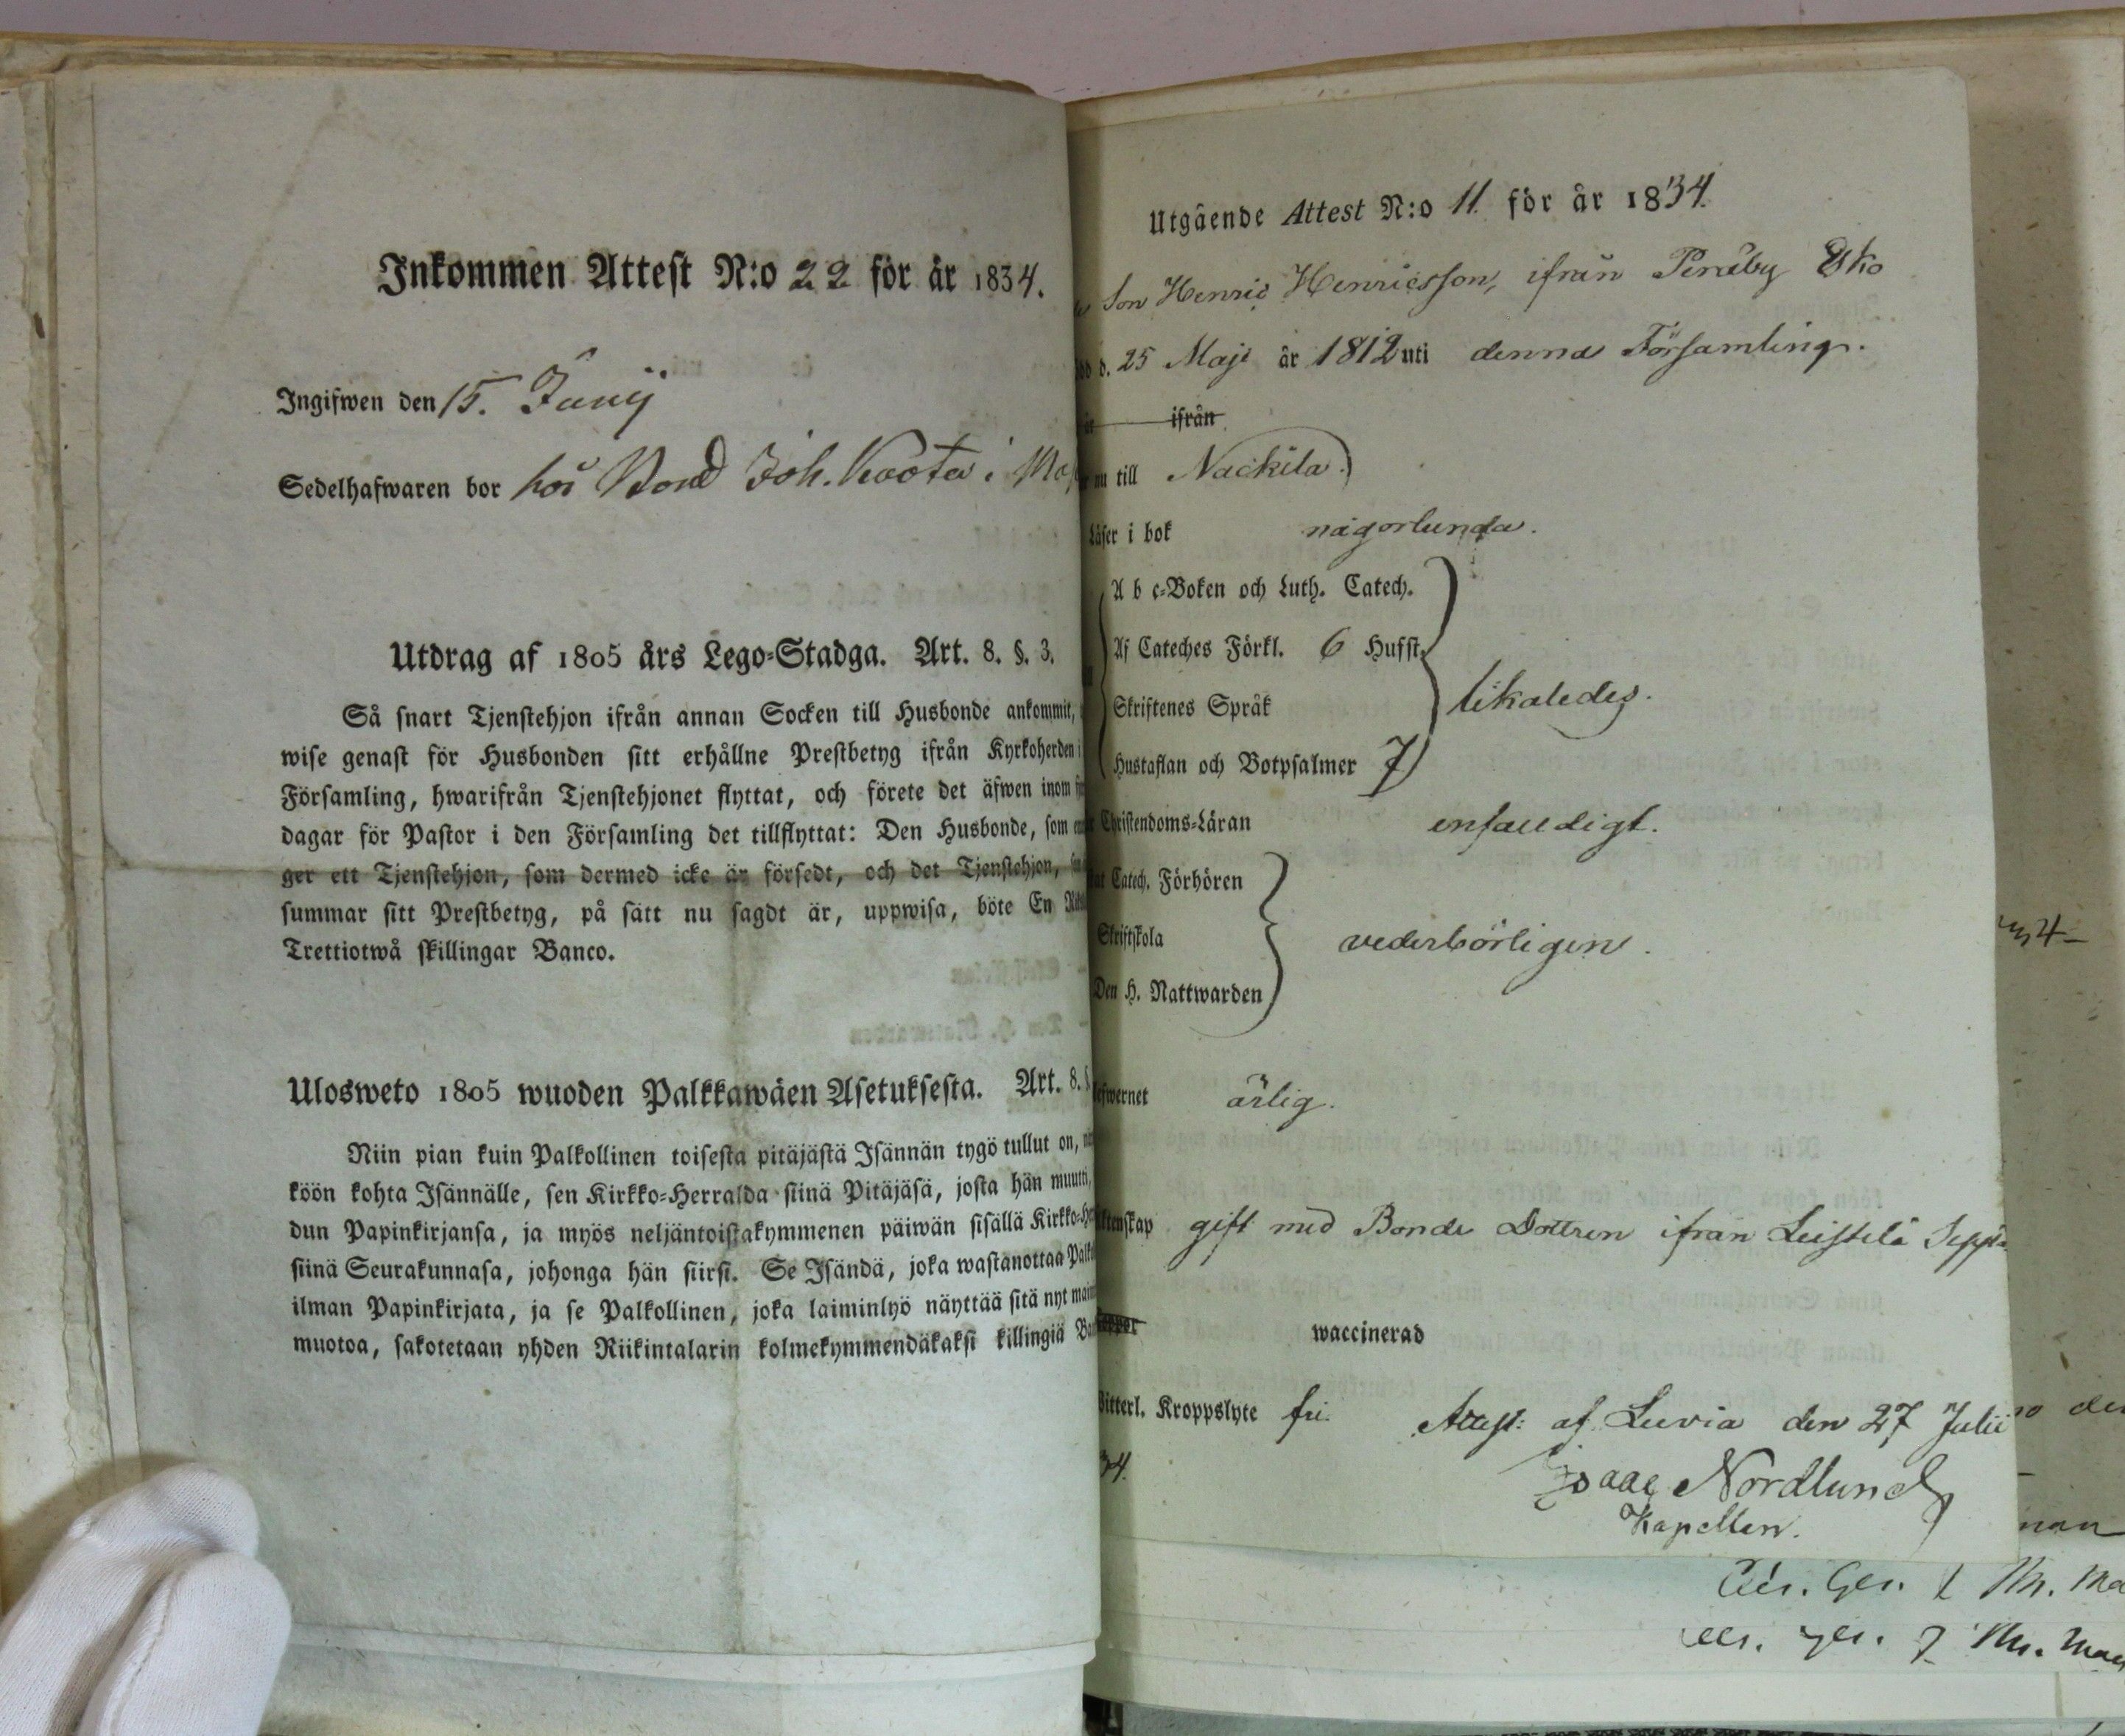 Inkommen Attest N:o 22 för år 1834.
Ingifwen den 15. Junij
Sedelhafwaren bor hos Bond Joh. Koota i
Utdrag af 1805 års Lego-Stadga. Art. 8. §. 3.
Så snart Tjenstehjon ifrån annan Socken till Husbonde ankommit,
wise genast för Husbonden sitt erhållne Prestbetyg ifrån Kyrkoherden i
Församling, hwarifrån Tjenstehjonet flyttat, och förete det äfwen inom
dagar för Pastor i den Församling det tillflyttat: Den Husbonde, som
ger ett Tjenstehjon, som dermed icke är försedt, och det Tjenstehjon,
summar sitt Prestbetyg, på sätt nu sagdt är, uppwisa, böte En
Trettiotwå skillingar Banco.
Ulosweto 1805 wuoden Palkkawäen Asetuksesta. Art. 8. §
Niin pian kuin Palkollinen toisesta pitäjästä Isännän tygö tullut on,
köön kohta Isännälle, sen Kirkko-Herralda siinä Pitäjäsä, josta hän muutti,
dun Papinkirjansa, ja myös neljäntoistakymmenen päiwän sisällä Kirkko-
siinä Seurakunnasa, johonga hän siirsi. Se Isändä, joka wastanottaa
ilman Papinkirjata, ja se Palkollinen, joka laiminlyö näyttää sitä nyt
muotoa, sakotetaan yhden Riikintalarin kolmekymmendäkaksi killingiä
Utgående Attest N:o 11. för år 1834.
Son Henric Henricsson, ifrån Peråby Esko
d. 25 Maji år 1812 uti denna Församling.
ifrån
nu till Nackila.
Läser i bok någorlunda.
A b c-Boken och Luth. Catech.
Af Cateches Förkl. 6 Hufst.
Skriftenes Språk likaledes.
Hustaflan och Botpsalmer 7
Christendoms-Läran enfaldigt.
Catech. Förhören
Skriftskola vederbörligen.
Den H. Nattwarden
lefwernet ärlig.
gift med Bonde Dottren ifrån Leistilä
waccinerad
Kroppslyte fri. Attest: af Luvia den 27 Julii
34.
Isaac Nordlund
Kapellan.